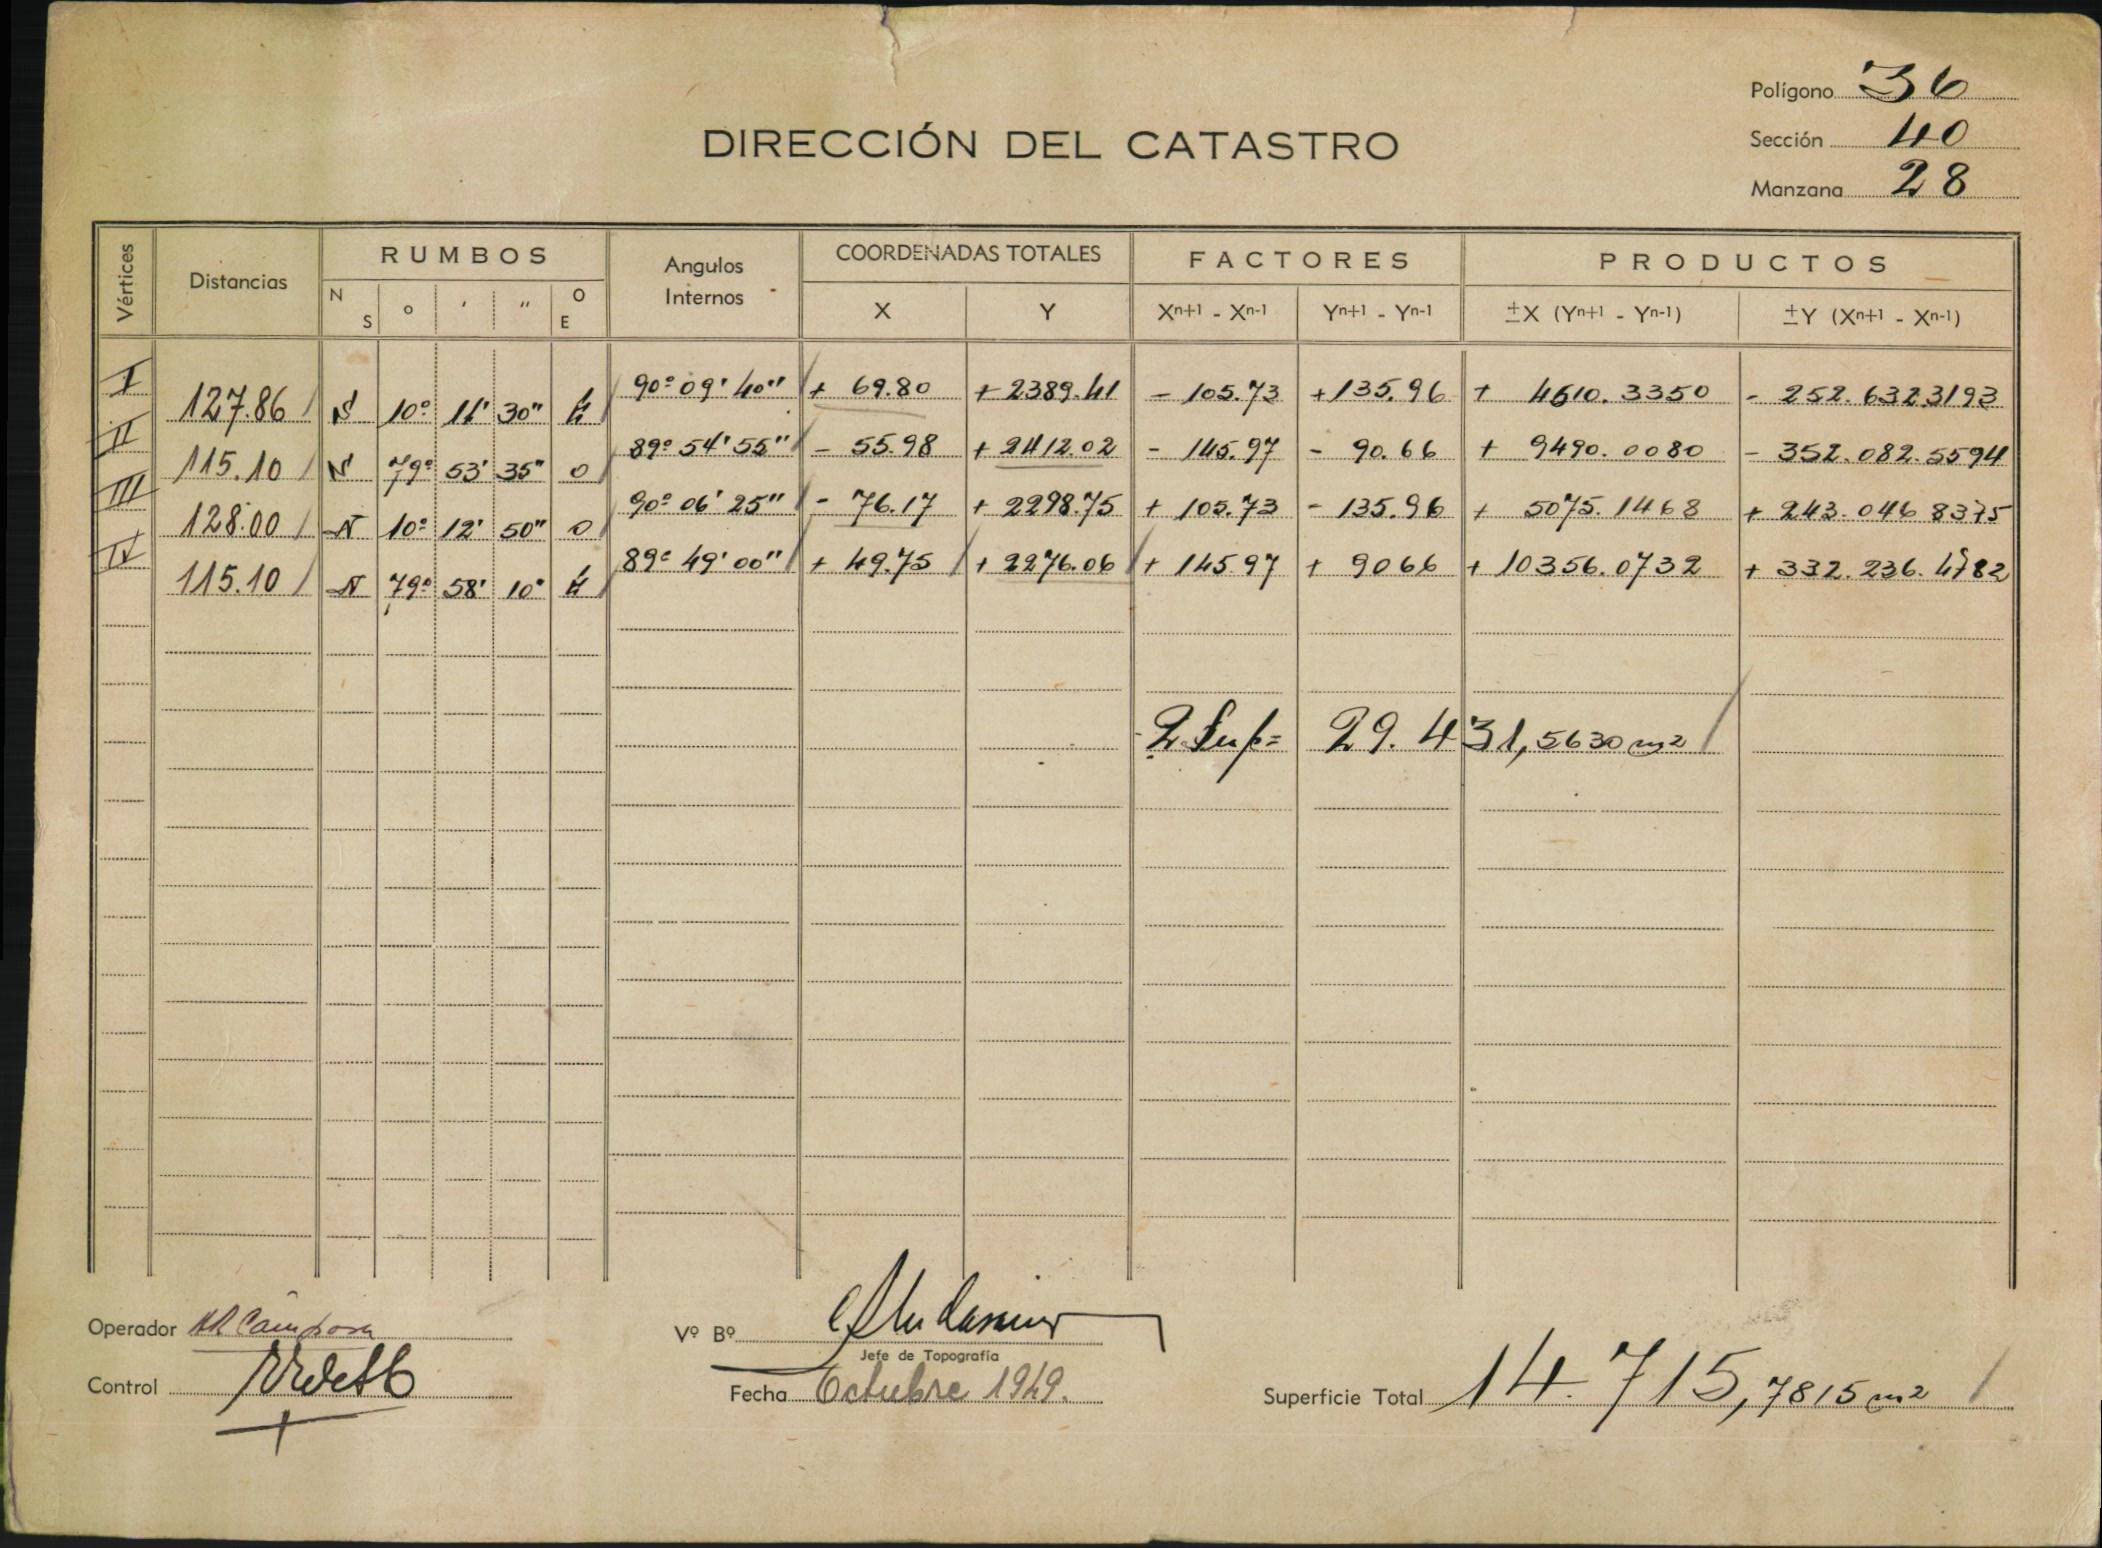 Polígono 36
DIRECCIÓN DEL CATASTRO
Sección 40
Manzana 28
Vértices Distancias RUMBOS Angulos Internos COORDENADAS TOTALES FACTORES PRODUCTOS
N S º ' " O E X Y Xn+1 - Xn-1 Yn+1 - Yn-1 ±X (Yn+1 - Yn-1) ±Y (Xn+1 - Xn-1)
I 90º 09' 40" + 69.80 + 2389.41 - 105.73 +135.96 + 4510.3350 - 252.632.3193
127.86 S 10º 11' 30" E
II 89º 54' 55" - 55.98 + 2412.02 - 145.97 - 90.66 + 9490.0080 - 352.082.5594
115.10 S 79º 53' 35" O
III 90º 06' 25" - 76.17 + 2298.75 + 105.73 - 135.96 + 5075.1468 + 243.046 8375
128.00 N 10º 12' 50" O
IV 89º 49' 00" + 49.75 + 2276.06 + 145.97 + 9066 + 10356.0732 + 332.236.4782
115.10 N 79º 58' 10" E
2 Sup= 29.431,5630 m2
Operador
Control
Vº Bº
Jefe de Topografía
Fecha Octubre 1949.
Superficie Total 14.715,7815 m2